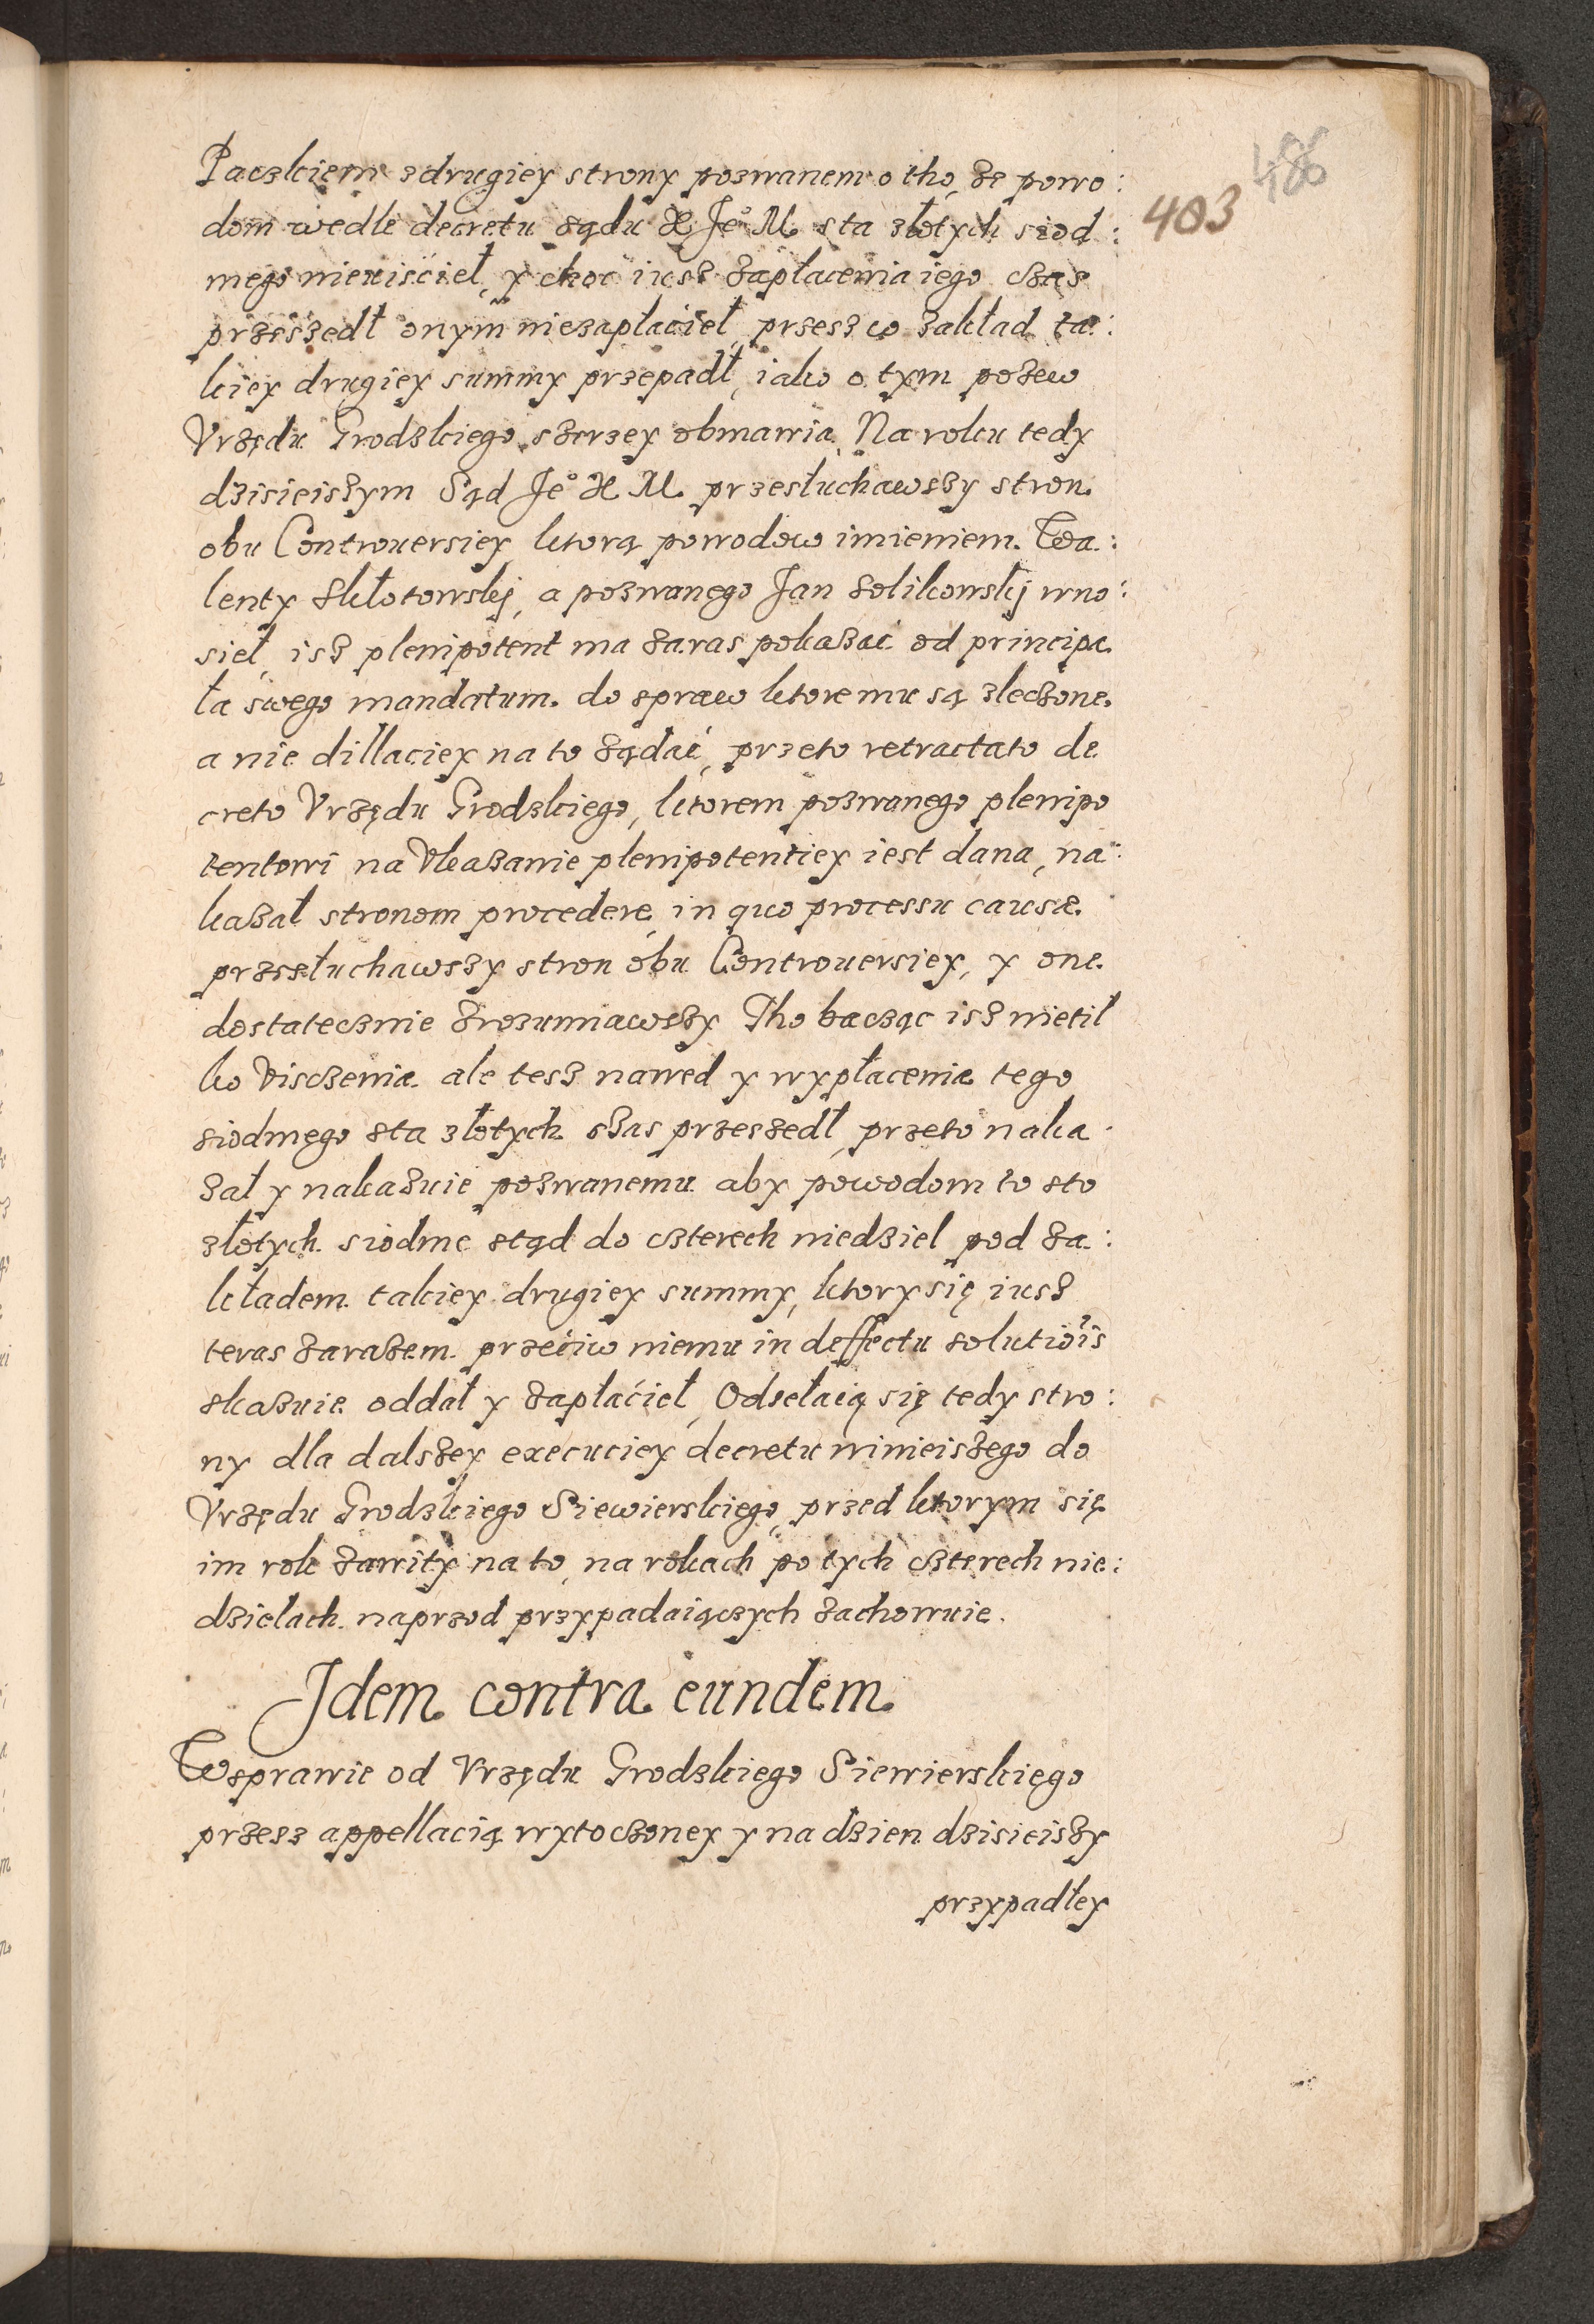 486
403
Paczkiem z drugiey strony pozwanem o tho, że powo:
dom wedle decretu sądu X Je° M. sta złotych siod:
mego nieuiścieł, y choć iusz zapłacenia iego czas
przeszedł onym niezapłacieł, przesz co zakład ta:
kiey drugiey summy przepadł, iako o tym pozew
Vrzędu Grodzkiego szerzey obmawia, Na roku tedy
dzisieiszym Sąd Je° X M. przesłuchawszy stron
obu Controuersiey, ktorą powodow imieniem. Wa:
lenty Skłotowskj, a pozwanego Jan Solikowskj wno:
sieł, isz plenipotent ma zaras pokazać od principa
ła swego mandatum. do spraw ktore mu są zleczone.
a nie dillaciey na to żądać, przeto retractato de
creto Vrzędu Grodzkiego, ktorem pozwanego plenipo
tentowi na Vkazanie plenipotentiey iest dana, na:
kazał stronom procedere, in quo processu causæ.
przesłuchawszy stron obu Controuersiey, y one
dostatecznie zrozumiawszy Tho bacząc isz nietil
ko Visczenia. ale tesz nawed y wypłacenia tego
siodmego sta złotych czas przeszedł, przeto naka
zał y nakazuie pozwanemu aby powodom to sto
złotych siodme stąd do czterech niedziel pod za:
kładem. takiey drugiey summy, ktory się iusz
teras zarazem. przeciw niemu in deffectu solutiois
skazuie oddał y zapłacieł, Odsełaią się tedy stro:
ny dla dalszey execuciey decretu ninieiszego do
Vrzędu Grodzkiego Siewierskiego, przed ktorym się
im rok zawity na to, na rokach po tych czterech nie:
dzielach. naprzod przypadaiączych zachowuie.
Idem contra eundem
Wsprawie od Vrzędu Grodzkiego Siewierskiego
przesz appellacią wytoczoney y na dzien dzisieiszy
przypadłey